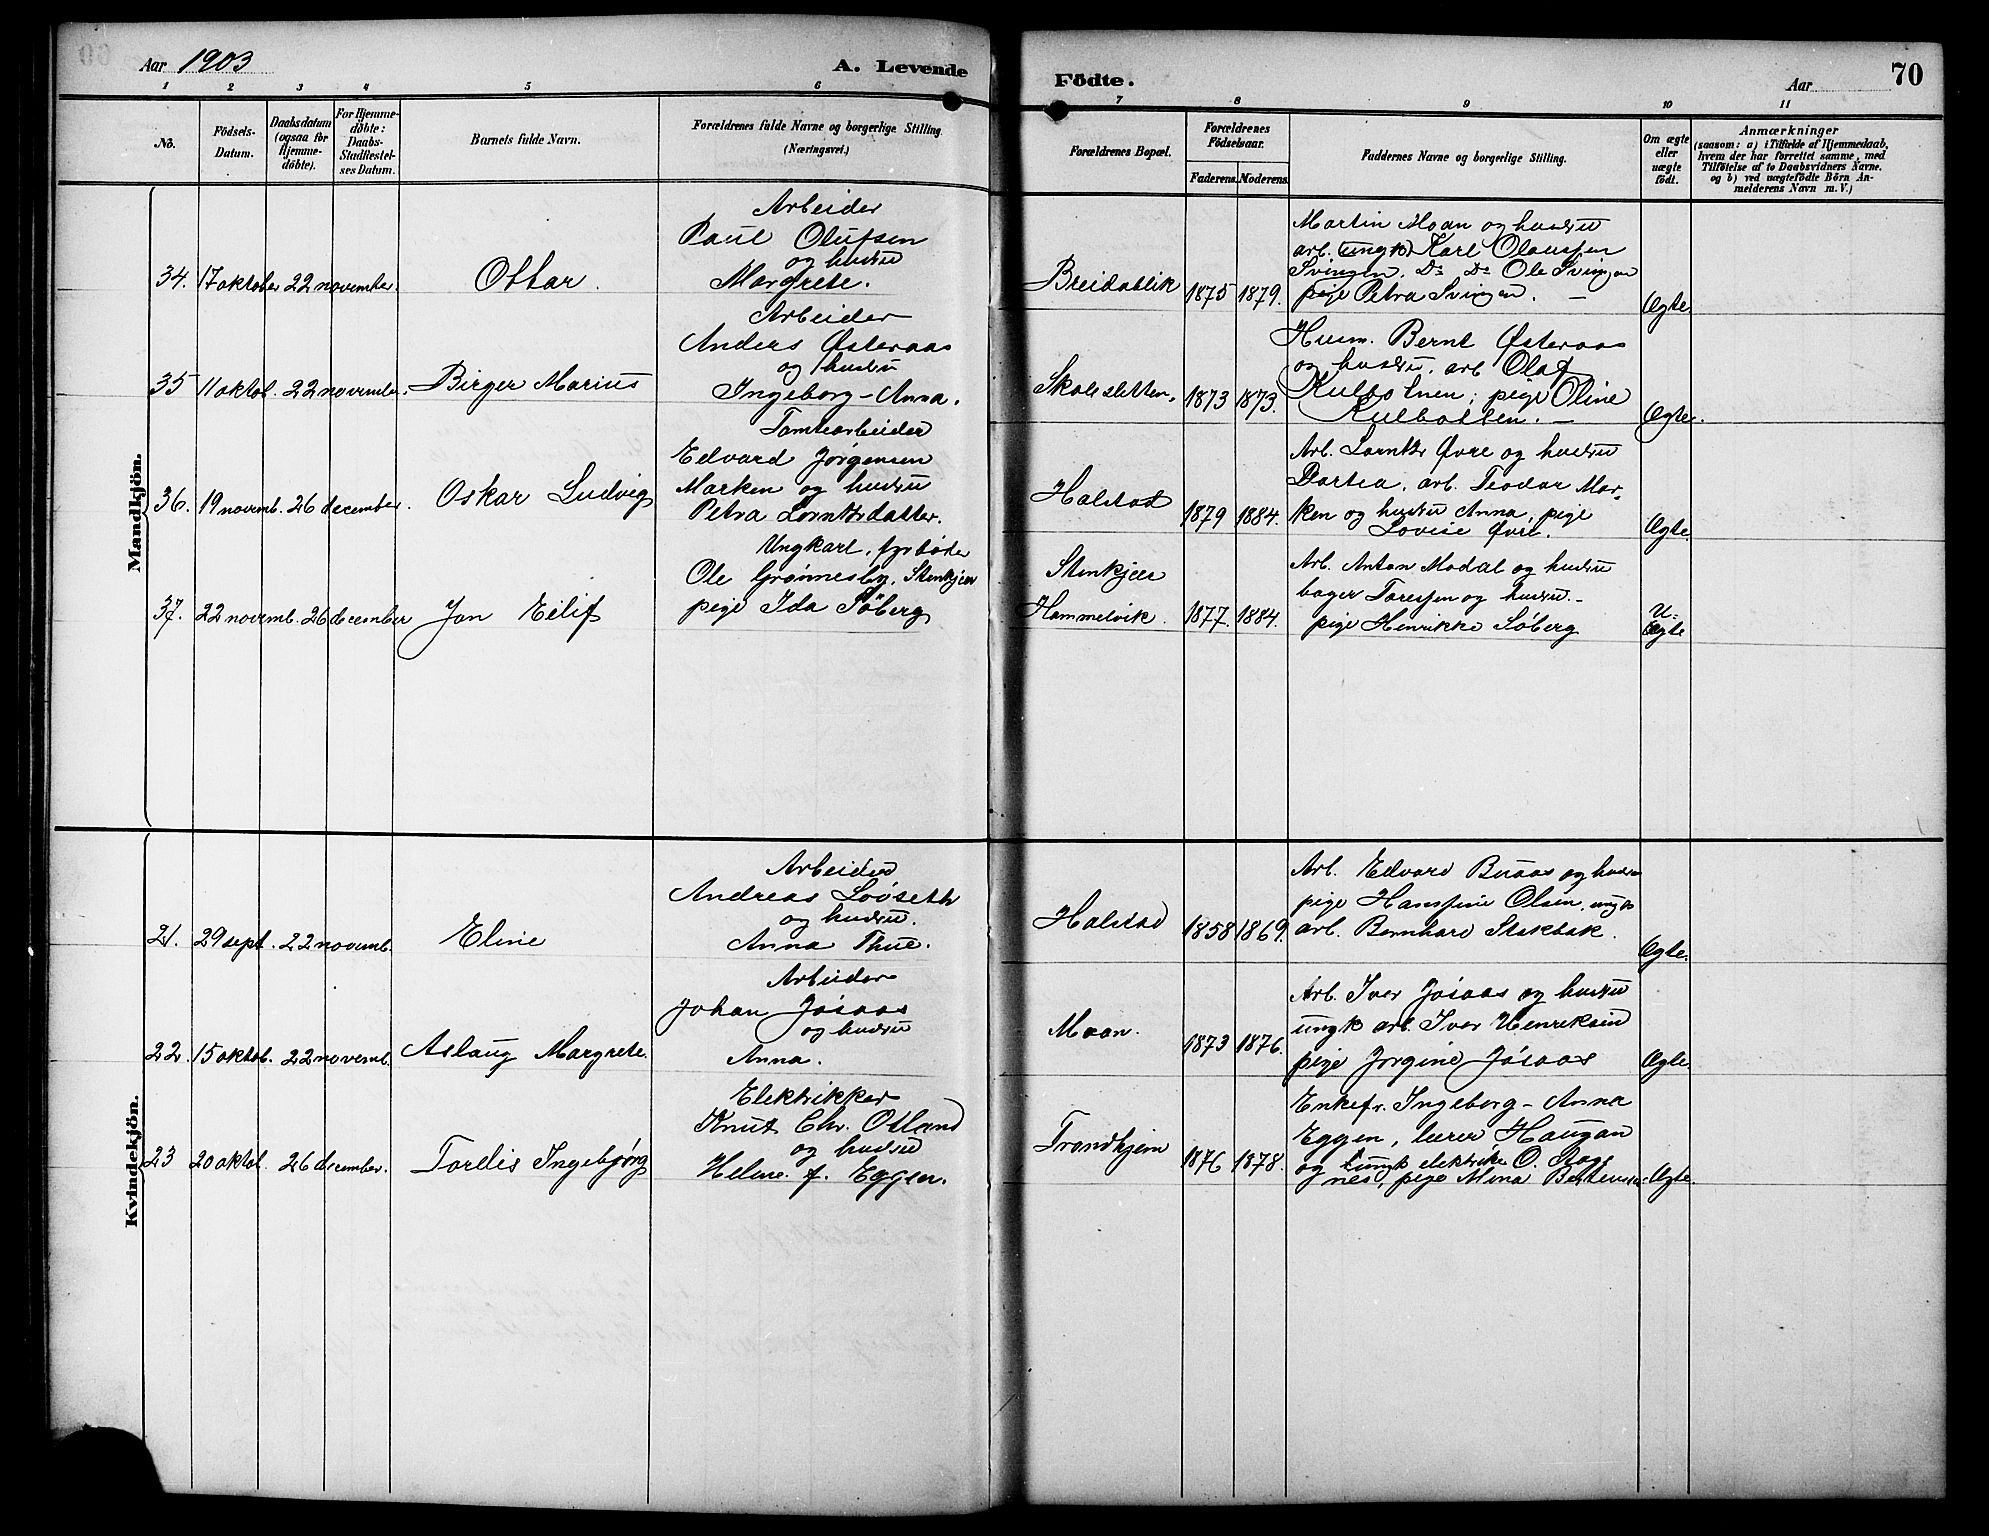 Aar 1903
A. Levende
Födte.
Aar
70
1 2 3 4 5 6 7 8 9 10 11
No.
Födsels-
Datum.
Daabsdatum
(ogsaa for
Hjemme-
döbte).
For Hjemme-
döbte:
Daabs-
Stadfæstel-
ses Datum.
Barnets fulde Navn.
Forældrenes fulde Navne og borgerlige Stilling.
(Næringsvei.)
Forældrenes Bopæl.
Forældrenes
Födselsaar.
Faderens. Moderens.
Faddernes Navne og borgerlige Stilling.
Om ægte
eller
uægte
födt.
Anmærkninger
(saasom: a) i Tilfælde af Hjemmedaab,
hvem der har forrettet samme, med
Tilföielse af to Daabsvidners Navne.
og b) ved uægtefödte Börn An-
melderens Navn m. V.)
Mandkjön.
34. 17 oktober 22 november. Ottar.
Arbeider
Paul Olufsen
og hustru
Margrete.
Breidablik 1875 1879.
Martin Moan og hustru
arb. (ungk) Karl Olaussen
Svingen, Do Do Ole Svingen
pige Petra Svingen. —
Ægte.
35 11 oktob. 22 november. Birger Marius
Arbeider
Anders Østeraas
og hustru
Ingeborg-Anna.
Skolesletten. 1873 1873.
Husm. Bernt Østeraas
og hustru, arb Olaf
pige Oline
Kulbotten. —
Ægte.
36. 19 novemb. 26 december. Oskar Ludvig
Tomtearbeider
Edvard Jørgensen
Marken og hustru
Petra Lorntsdatter.
Halstad 1879 1884.
Arb. Lornts Øvre og hustru
Dortea, arb. Teodor Mar-
ken og hustru Anna, pige
Lovise Øvre.
Ægte.
37. 22 novemb. 26 december Jon Eilif
Ungkarl, fyrbøder
Ole Grønnesby, Stenkjær
pige Ida Søberg
Stenkjær
Hammelvik. 1877. 1884.
Arb. Anton Modal og hustru
bager Toressen og hustru. -
pige Henrikke Søberg
U-
Ægte
Kvindekjön.
21. 29 sept. 22 novemb. Eline
Arbeider
Andreas Løiseth
og hustru.
Anna Thue.
Halstad 1858 1869.
Arb. Edvard Buaas og hustru
pige Hansine Olsen, ungk
arb. Bernhard Stokbak.
Ægte.
22. 15 oktob. 22 novemb. Aslaug Margrete.
Arbeider
Johan Jøsaas
og hustru
Anna.
Moan. 1873 1876.
Arb. Iver Jøsaas og hustru
ungk arb. Iver Henriksen
pige Jørgine Jøsaas
Ægte.
23 20 oktob. 26 december. Tordis Ingebjørg
Elektrikker
Knut Chr. Østlund
og hustru
Helene f. Eggen.
Trondhjem 1876 1878.
Enkefr. Ingeborg-Anna
Eggen, lærer Haugan
og ungk elektrike O.
nes, pige Mina
Ægte.